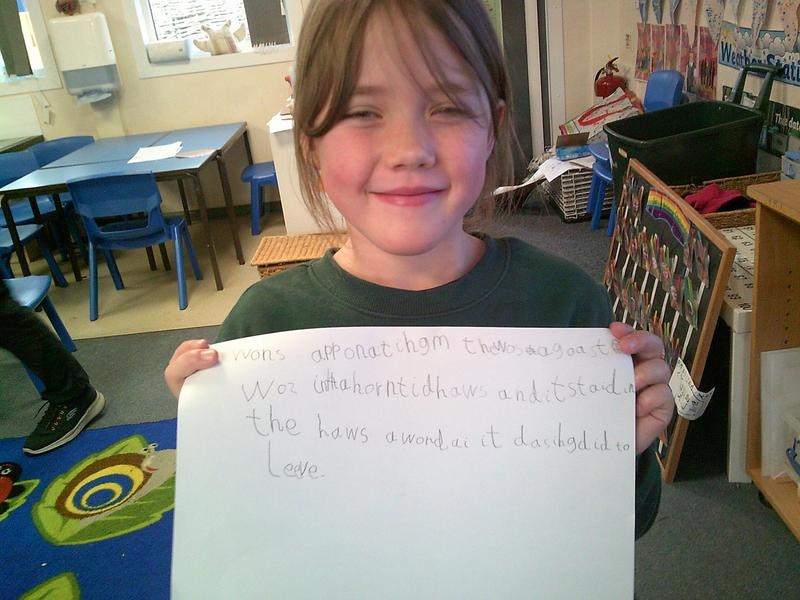 wons apponatihgm thewos agoast
woz inthahorntidhaws anditstaid in
the haws awondai it dasihgdid to
leeve.
Weather Stati